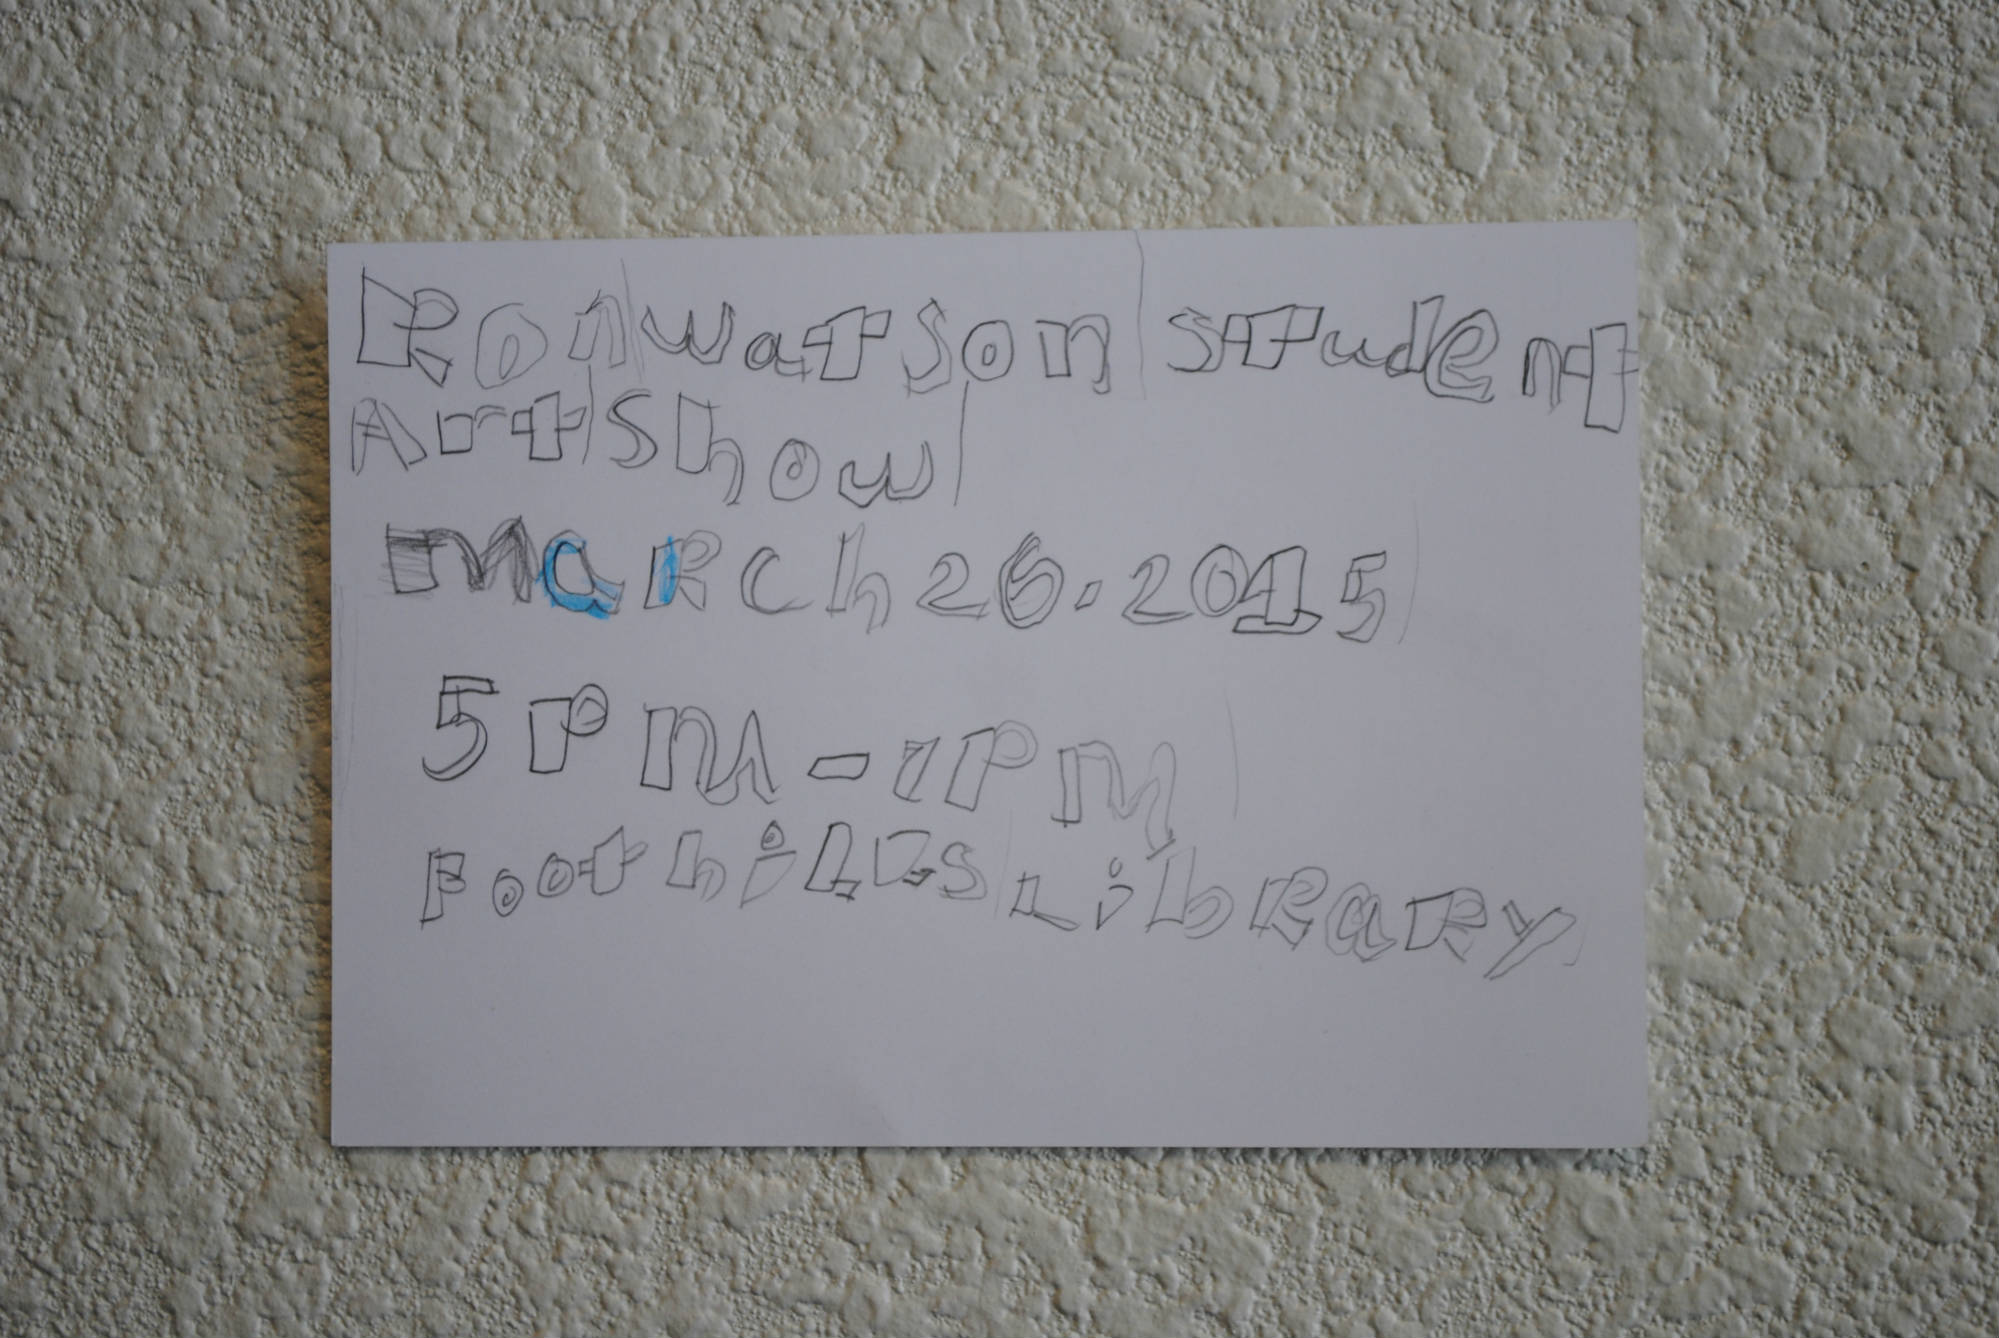 Ron Watson Student
Art Show
March 26. 2015
5PM - 7PM
Foothills Library